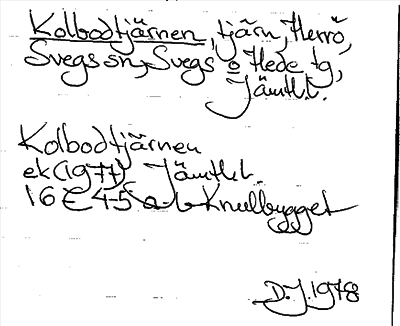 Kolbodtjärnen, tjärn, Herrö,
Svegs sn, Svegs o Hede tg,
Jämtl. l.
Kolbodtjärnen
ek (1977) Jämtl. l.
16 E 4-5 a-b Knullbygget
D.J. 1978